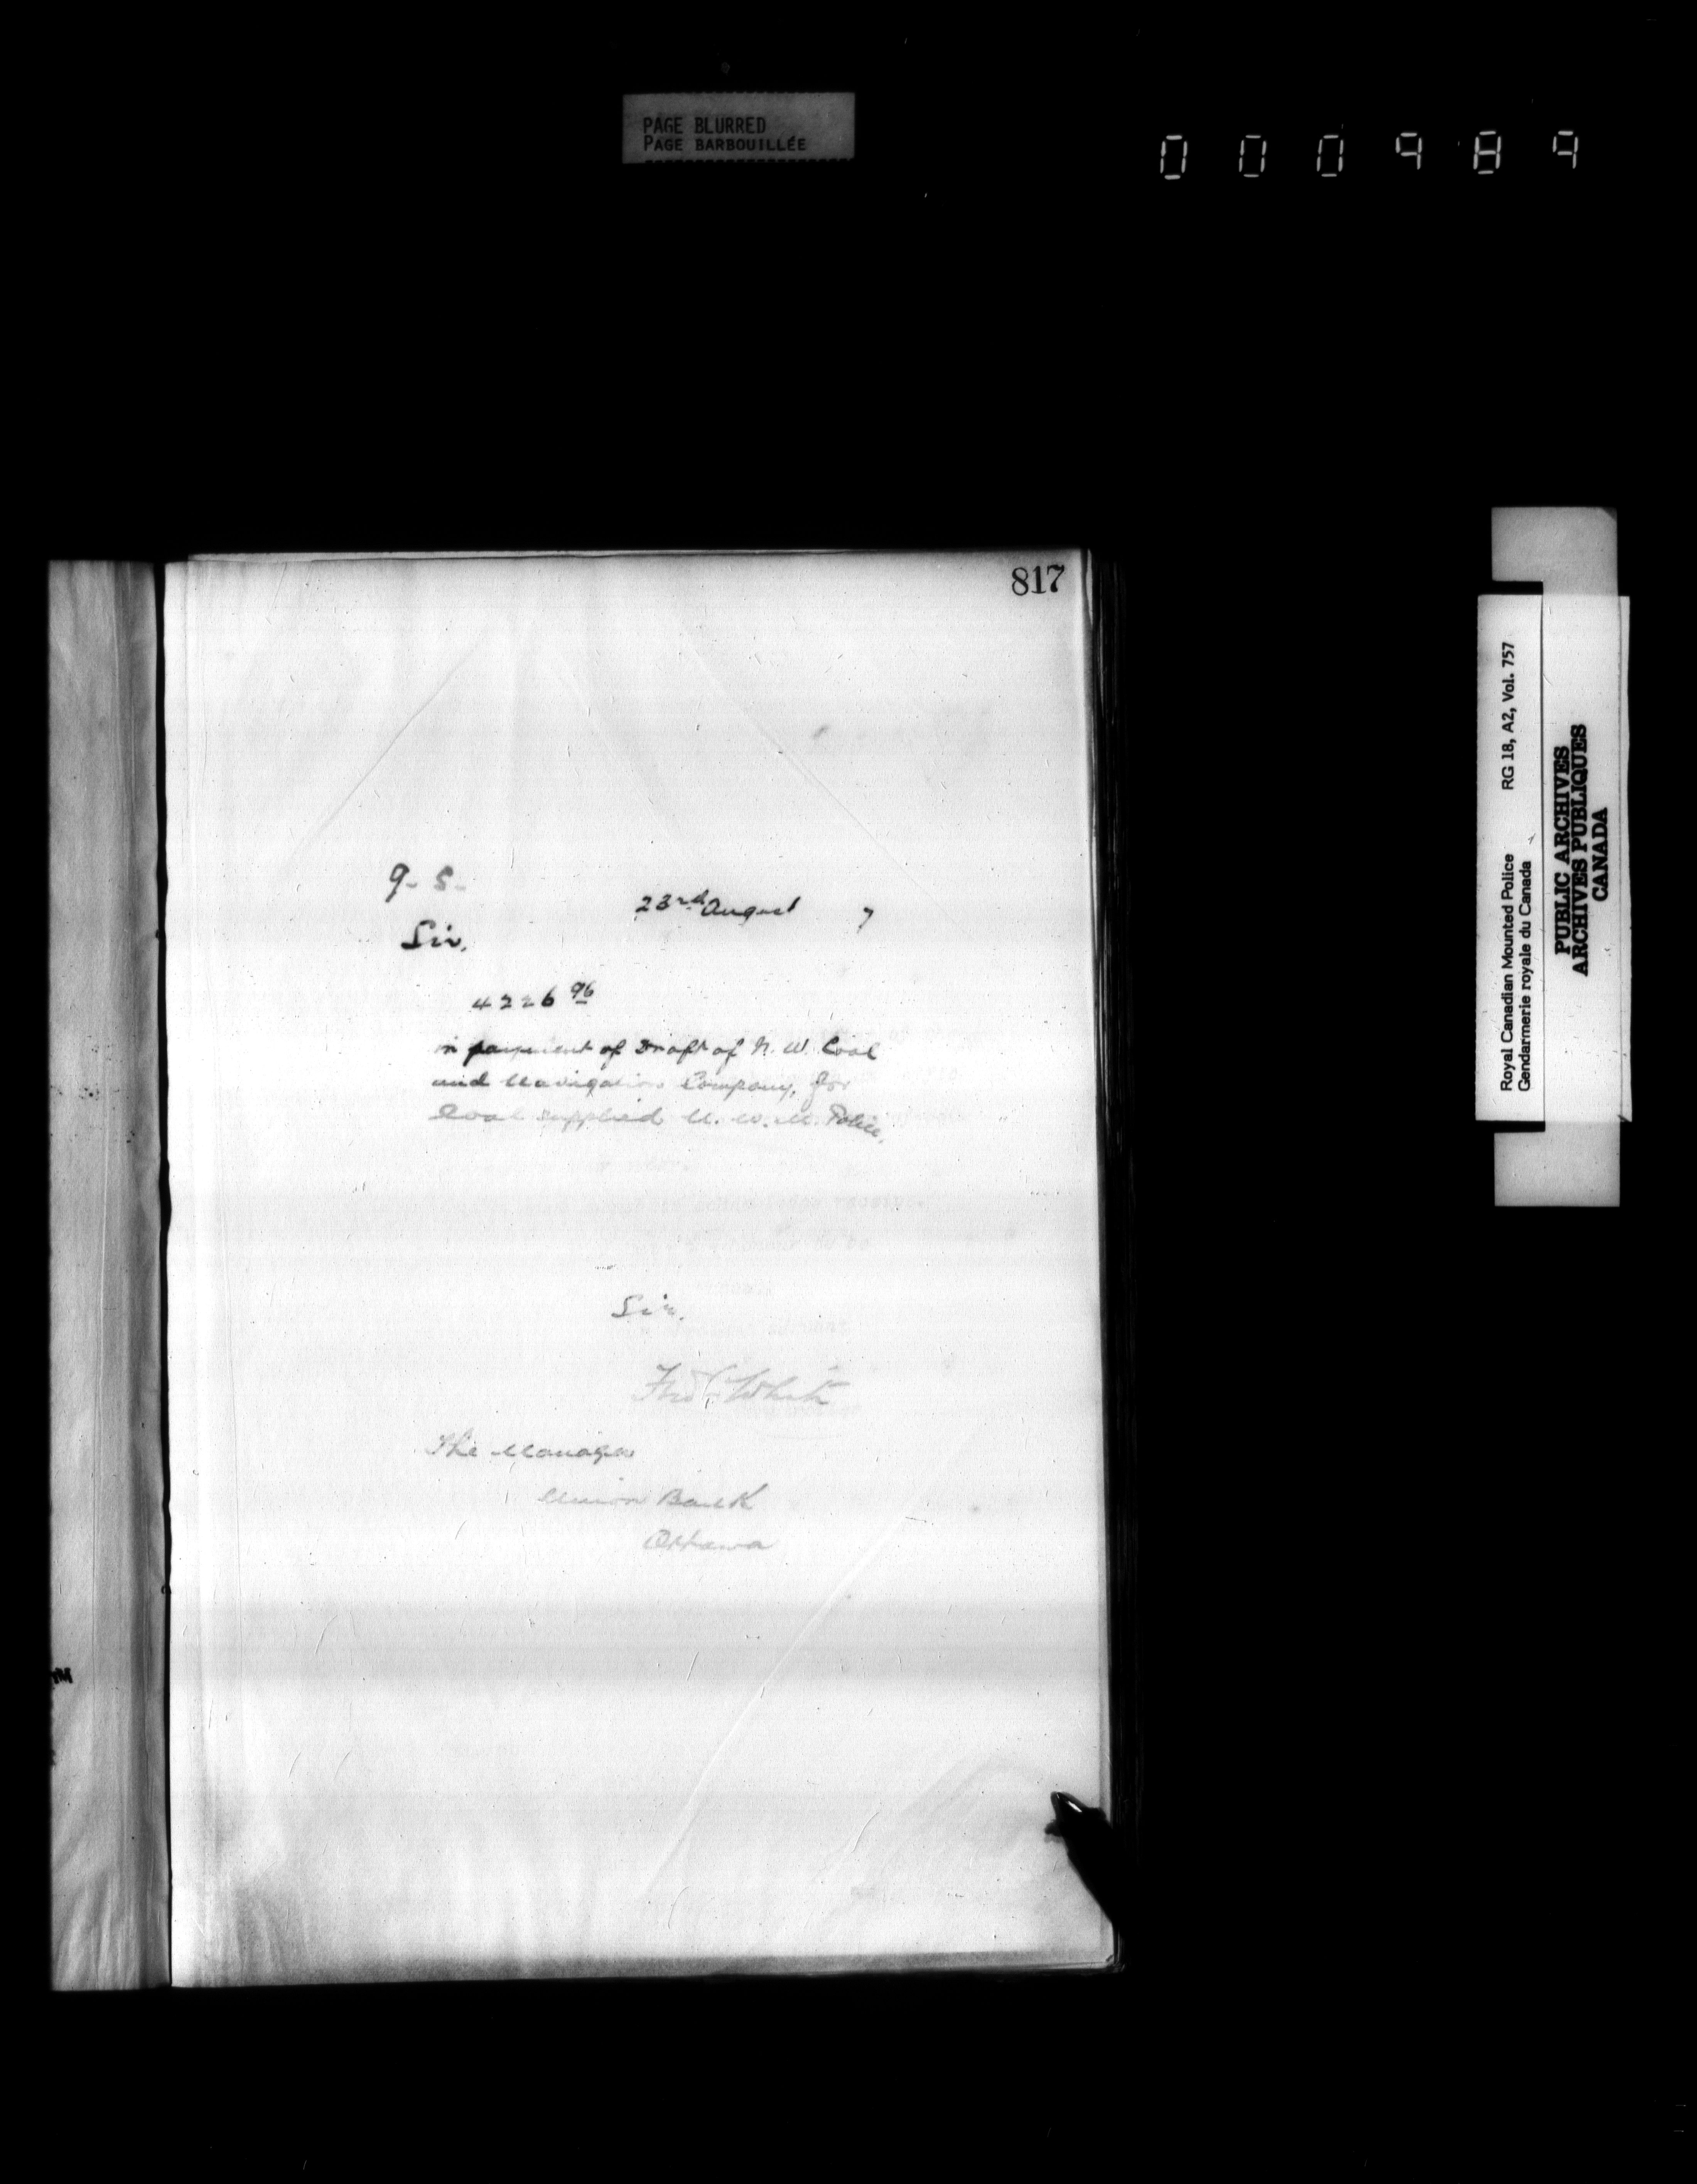 PAGE BLURRED
PAGE BARBOUILLÉE
000989
817
9- 5-
23rd August 7
Sir,
4226 96
in payment of Draft of N. W. Coal
and Navigation Company, for
Coal supplied N. W. M. Police,
Sir,
Fred White
The Manager
Union Bank
Ottawa
Royal Canadian Mounted Police RG 18, A2, Vol. 757
Gendarmerie royale du Canada
PUBLIC ARCHIVES
ARCHIVES PUBLIQUES
CANADA